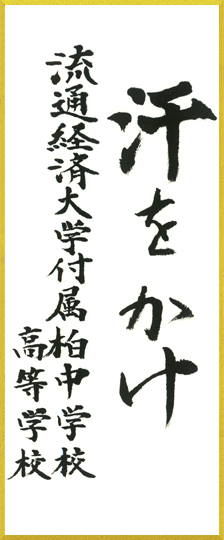 汗をかけ
流通経済大学付属柏中学校
高等学校